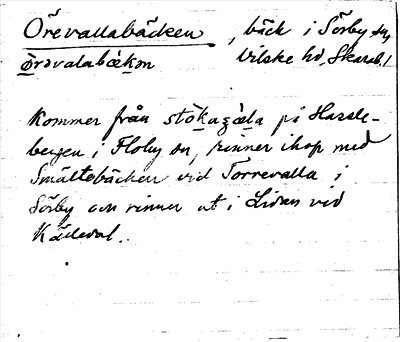 Örevallabäcken, bäck i Sörby sn,
örəvalabækən Vilske hd, Skarab. l
Kommer från stökagæla på Hassle-
bergen i Floby sn, rinner ihop med
Smältebäcken vid Torrevalla i
Sörby och rinner ut i Lidan vid